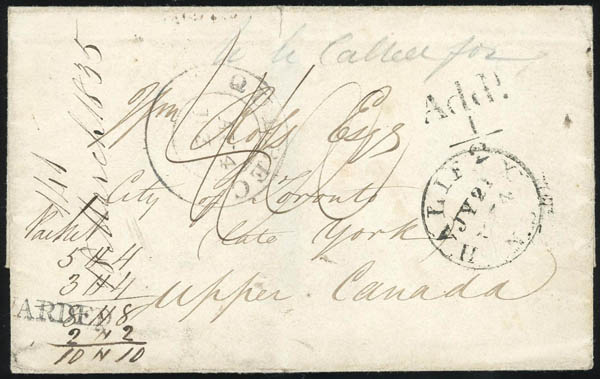 to be Called for
Wm Ross Esqr
City of Toronto
late York
Upper Canada
Addl.
1
HALIFAX
JY 21
QUEBEC
March 1835
5 " 4
3 " 4
8 " 8
2 " 2
10 " 10